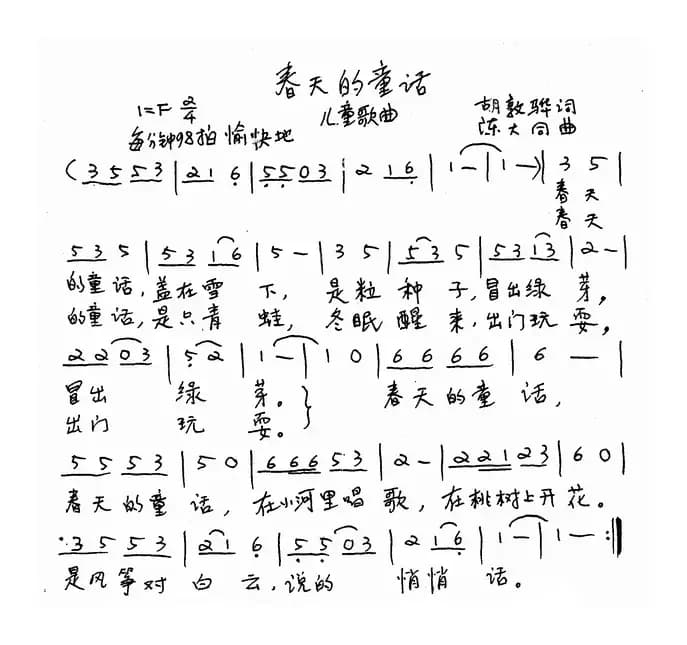 春天的童话
1=F 2/4 儿童歌曲 胡敦骅词
每分钟98拍 愉快地 陈大同曲
(3 5 5 3 | 2 1 6 | 5 5 0 3 | 2 1 6 | 1 — | 1 —) | 3 5 |
春 天
春 天
5 3 5 | 5 3 1 6 | 5 — | 3 5 | 5 3 5 | 5 3 1 3 | 2 — |
的童话,盖在雪 下, 是粒 种 子,冒出绿 芽,
的童话,是只青 蛙, 冬眠 醒 来,出门玩 耍,
2 2 0 3 | 5 2 | 1 — | 1 0 | 6 6 6 6 | 6 — |
冒出 绿 芽。} 春天的童 话,
出门 玩 耍。
5 5 5 3 | 5 0 | 6 6 6 5 3 | 2 — | 2 2 1 2 3 | 6 0 |
春天的童 话, 在小河里唱 歌, 在桃树上开 花。
: 3 5 5 3 | 2 1 6 | 5 5 0 3 | 2 1 6 | 1 — | 1 — :||
是风筝对 白 云,说的 悄悄 话。